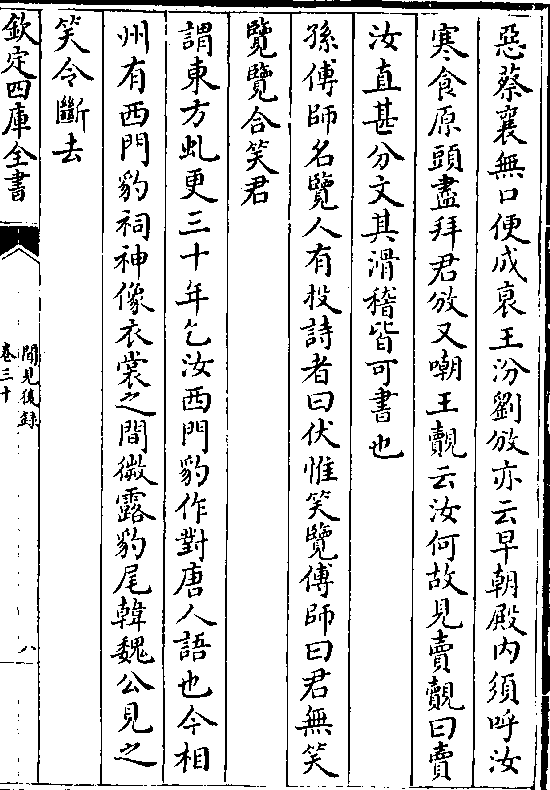 惡蔡襄無口便成衰王汾劉攽亦云早朝殿内須呼汝
寒食原頭盡拜君攽又嘲王覿云汝何故見賣覿曰賣
汝直甚分文其滑稽皆可書也
孫傅師名覽人有投詩者曰伏惟笑覽傅師曰君無笑
覽覽合笑君
謂東方虬更三十年乞汝西門豹作對唐人語也今相
州有西門豹祠神像衣裳之間微露豹尾韓魏公見之
笑令斷去
欽定四庫全書
聞見後録
卷三十
八